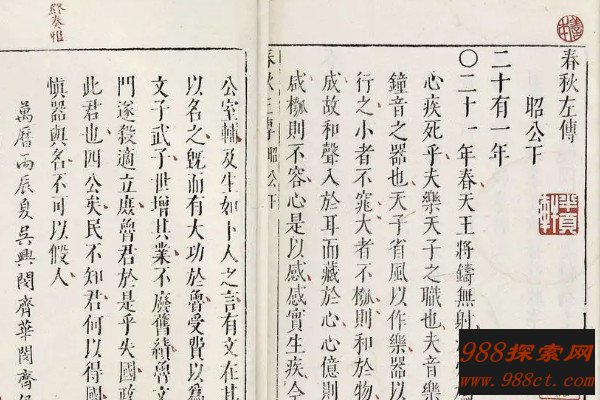 春秋左傳
昭公下
二十有一年
〇二十一年春天王將鑄無射
心疾死乎夫樂天子之職也夫音樂
鐘音之器也天子省風以作樂器以
行之小者不窕大者不槬則和於物
成故和聲入於耳而藏於心心億則
感槬則不容心是以感感實生疾今
春秋左傳昭公下
公室輔及生如卜人之言有文在其
以名之既而有大功於魯受費以爲
文子武子世增其業不廢舊績魯文
門遂殺適立庶魯君於是乎失國政
此君也四公矣民不知君何以得國
慎器與名不可以假人
萬曆丙辰夏吳興閔齊華閔齊伋
終奏雅
988探索网
www.988ct.com